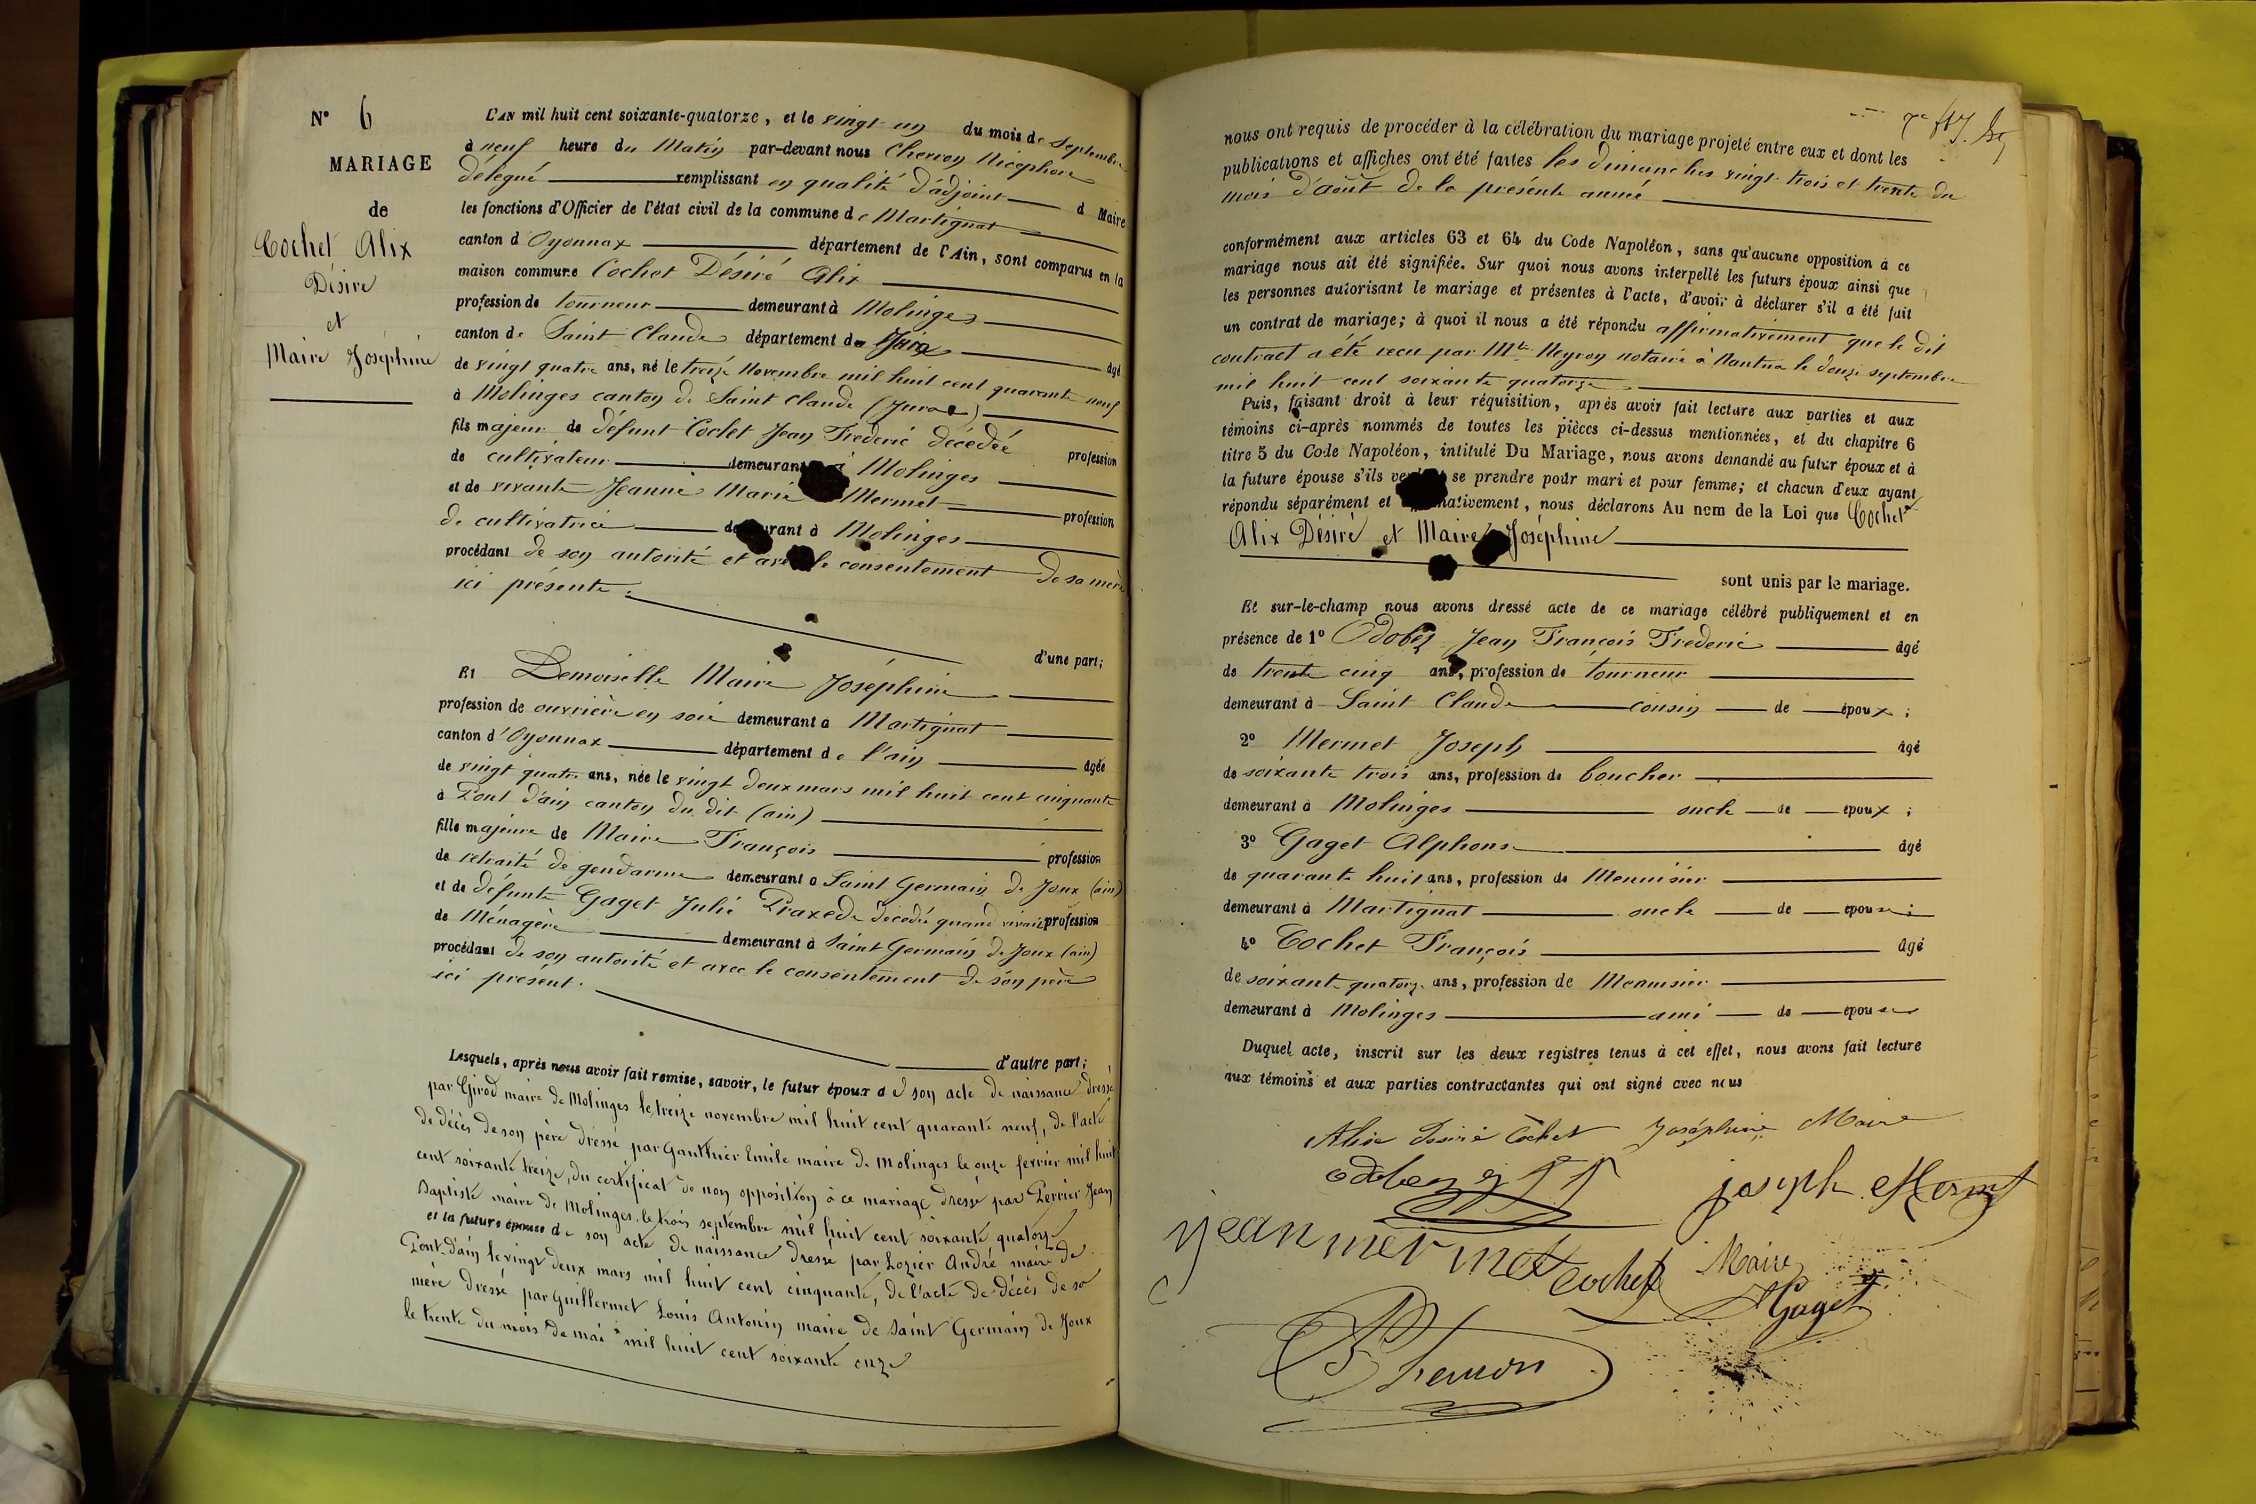 N° 6
MARIAGE
de
Cochet Alix
Désiré
et
Maire Joséphine
L'AN mil huit cent soixante-quatorze, et le vingt un du mois de Septembre
à neuf heure du Matin par-devant nous Chevron Nicéphore
délegué remplissant en qualité d'adjoint d Maire
les fonctions d'Officier de l'état civil de la commune de Martignat
canton d'Oyonnax département de l'Ain, sont comparus en la
maison commune Cochet Désiré Alix
profession de tourneur demeurant à Molinges
canton de Saint Claude département du Jura âgé
de vingt quatre ans, né le treize Novembre mil huit cent quarante neuf
à Molinges canton de Saint Claude (Jura)
fils majeur de défunt Cochet Jean Frederic décédée profession
de cultivateur demeurant à Molinges
et de vivante Jeanne Marie Mermet profession
de cultivatrice demeurant à Molinges
procédant de son autorité et avec le consentement de sa mère
ici présente.
d'une part;
Et Demoiselle Maire Joséphine
profession de ouvrière en soie demeurant à Martignat
canton d'Oyonnax département de l'ain âgée
de vingt quatre ans, née le vingt deux mars mil huit cent cinquante
à Pont d'ain canton du dit (ain)
fille majeure de Maire François profession
de retraité de gendarme demeurant à Saint Germain de Joux (ain)
et de défunte Gaget Julie Praxede décedée quand vivait profession
de Ménagère demeurant à Saint Germain de Joux (ain)
procédant de son autorité et avec le consentement de son père
ici présent.
d'autre part;
Lesquels, après nous avoir fait remise, savoir, le futur époux d e son acte de naissance dressé
par Girod maire de Molinges le treize novembre mil huit cent quarante neuf, de l'acte
de décès de son père dressé par Gauthier Emile maire de Molinges le onze fevrier mil huit
cent soixante treize, du certificat de non opposition à ce mariage dressé par Perrier Jean
Baptiste maire de Molinges le trois septembre mil huit cent soixante quatorze
et la future épouse de son acte de naissance dressé par Lozier André maire de
Pont-d'ain le vingt deux mars mil huit cent cinquante, de l'acte de décès de sa
mère dressé par Guillermet Louis Antonin maire de Saint Germain de Joux
le trente du mois de mai mil huit cent soixante onze
nous ont requis de procéder à la célébration du mariage projeté entre eux et dont les
publications et affiches ont été faites les dimanches vingt-trois et trente du
mois d'août de la présente année
conformément aux articles 63 et 64 du Code Napoléon, sans qu'aucune opposition à ce
mariage nous ait été signifiée. Sur quoi nous avons interpellé les futurs époux ainsi que
les personnes autorisant le mariage et présentes à l'acte, d'avoir à déclarer s'il a été fait
un contrat de mariage; à quoi il nous a été répondu affirmativement que le dit
contract a été recu par Mtre Neyron notaire à Nantua le douze septembre
mil huit cent soixante quatorze.
Puis, faisant droit à leur réquisition, après avoir fait lecture aux parties et aux
témoins ci-après nommés de toutes les pièces ci-dessus mentionnées, et du chapitre 6
titre 5 du Code Napoléon, intitulé Du Mariage, nous avons demandé au futur époux et à
la future épouse s'ils veulent se prendre pour mari et pour femme; et chacun d'eux ayant
répondu séparément et affirmativement, nous déclarons Au nom de la Loi que Cochet
Alix Désiré et Maire Joséphine
sont unis par le mariage.
Et sur-le-champ nous avons dressé acte de ce mariage célébré publiquement et en
présence de 1° Odobez Jean François Frederic âgé
de trente cinq ans, profession de tourneur
demeurant à Saint Claude cousin de époux;
2° Mermet Joseph âgé
de soixante trois ans, profession de boucher
demeurant à Molinges oncle de époux;
3° Gaget Alphonse âgé
de quarante huit ans, profession de Menuisier
demeurant à Martignat oncle de epouse;
4° Cochet François âgé
de soixante quatorze ans, profession de Menuisier
demeurant à Molinges ami de epouse
Duquel acte, inscrit sur les deux registres tenus à cet effet, nous avons fait lecture
aux témoins et aux parties contractantes qui ont signé avec nous
Alix Desiré Cochet Joséphine Maire
Odobez joseph Mermet
jean mermet Cochet Maire
Gaget
Chevron